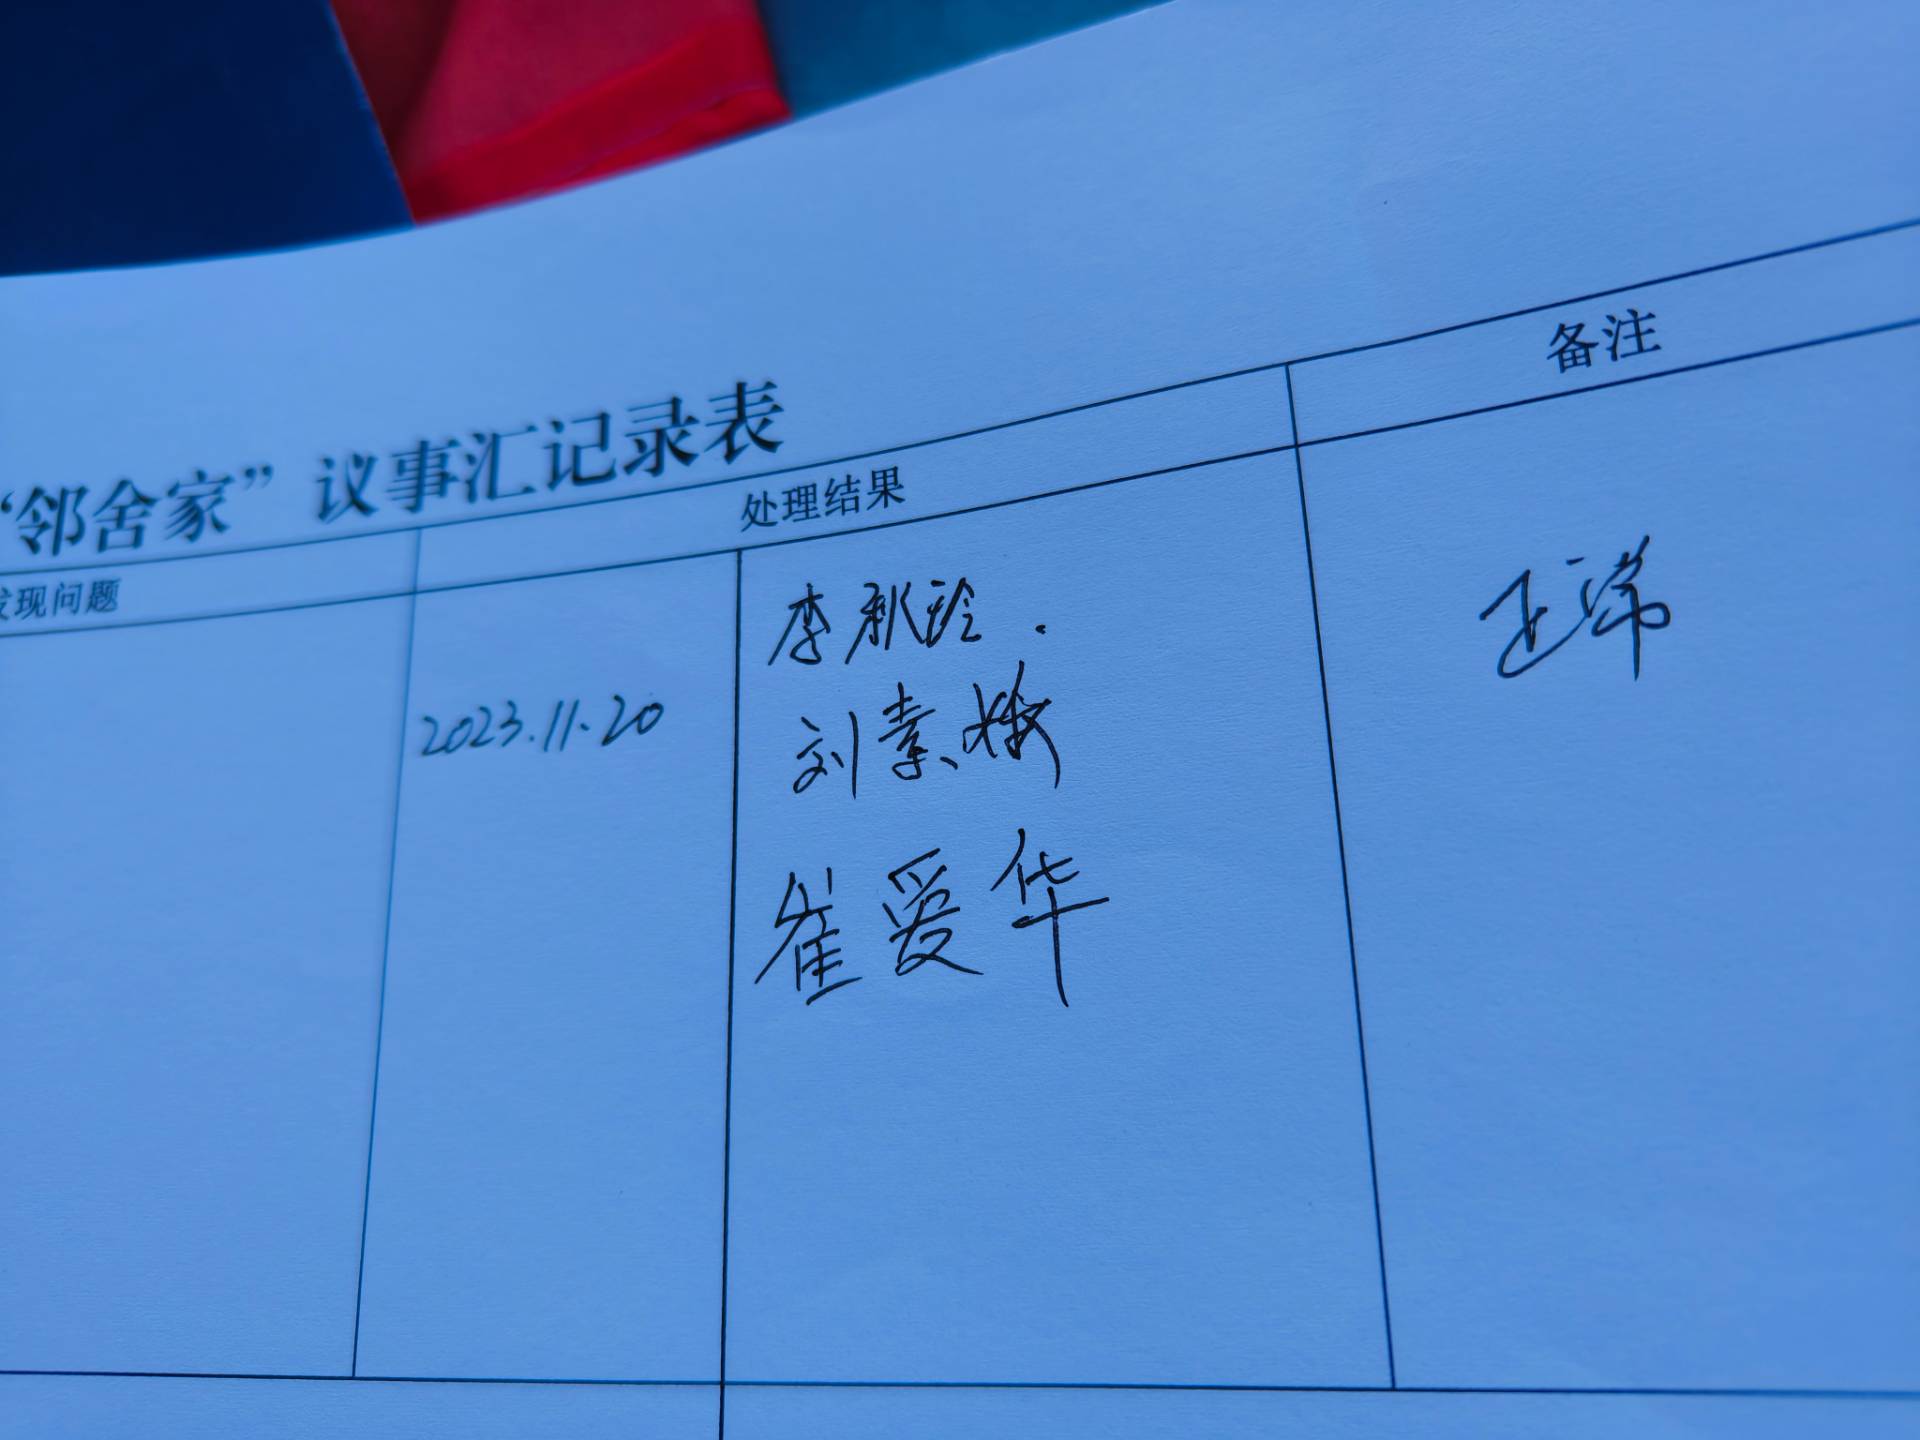 “邻舍家”议事汇记录表
发现问题
处理结果
备注
2023.11.20
李秋玲.
刘素娥
崔爱华